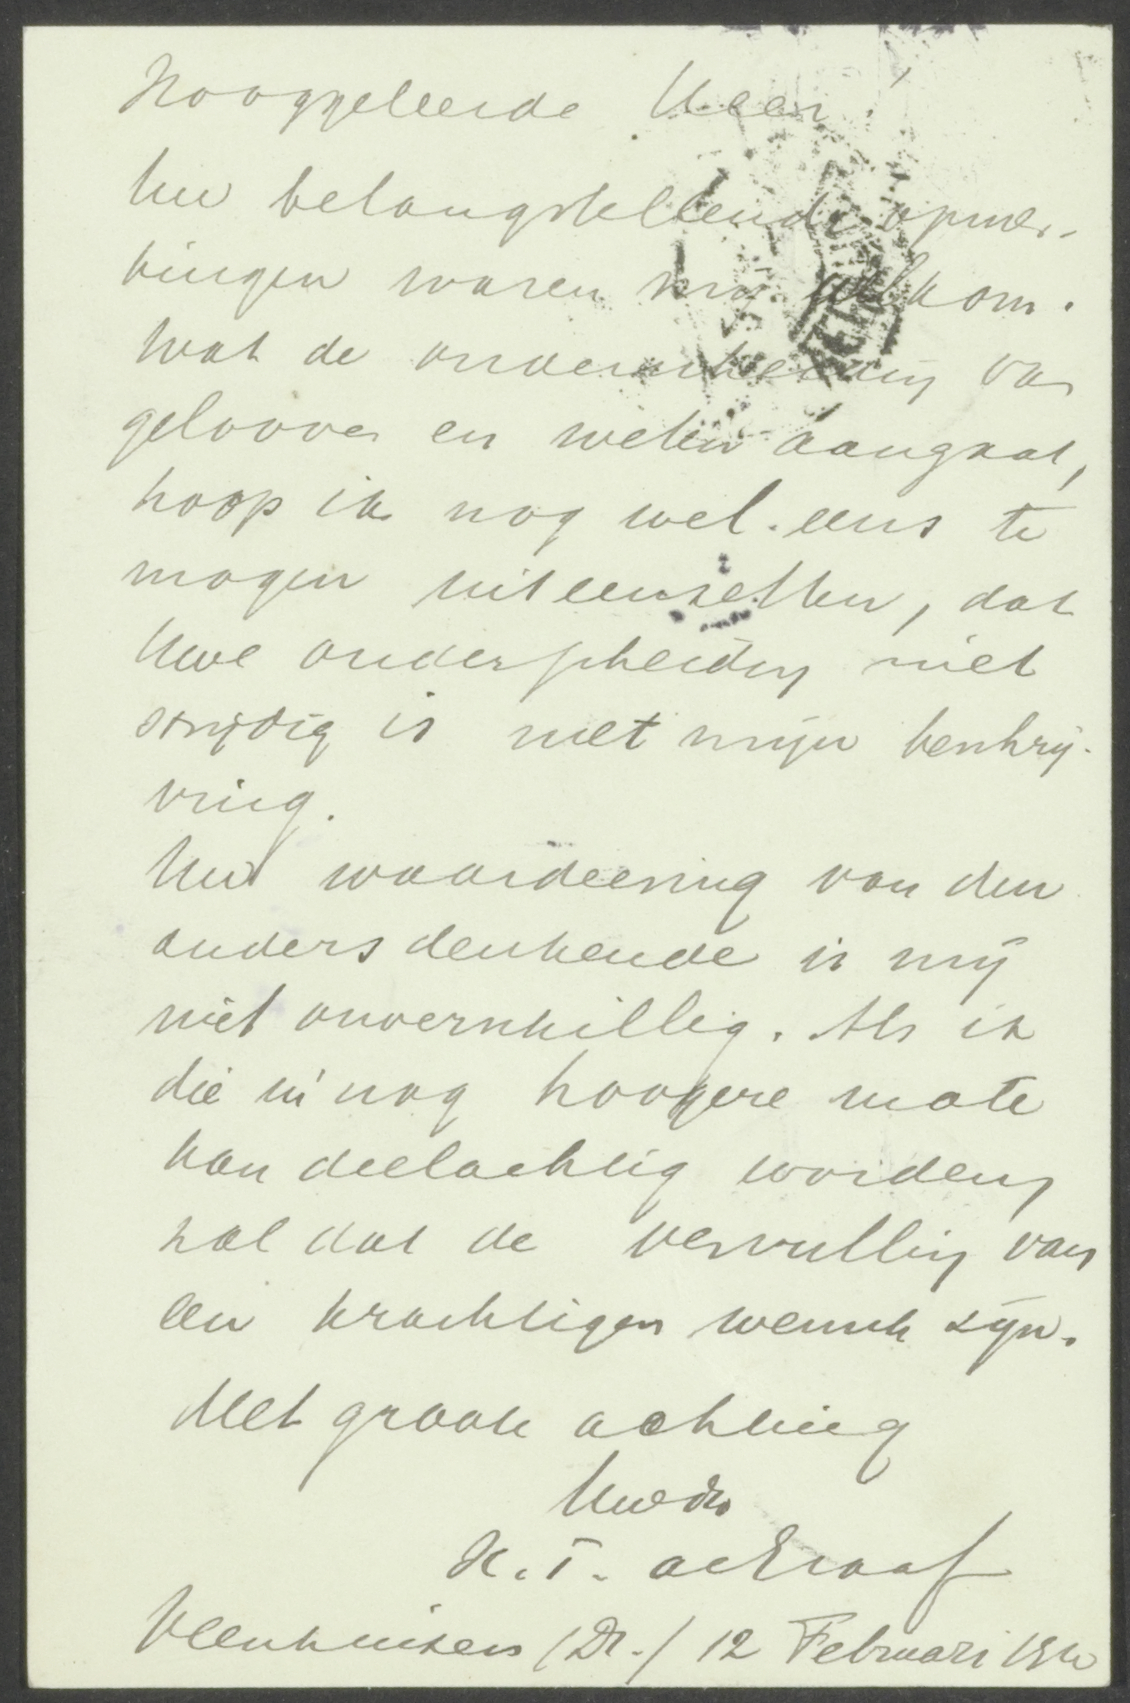 Hooggeleerde Heer!
Uw belangstellende opmer-
kingen waren mij welkom.
Wat de onderscheiding van
gelooven en weten aangaat,
hoop ik nog wel eens te
mogen uiteenzetten, dat
Uwe onderscheiding niet
strijdig is met mijn beschrij-
ving.
Uw waardeering van den
andersdenkende is mij
niet onverschillig. Als ik
die in nog hoogere mate
kan deelachtig worden,
zal dat de vervulling van
een krachtigen wensch zijn.
Met groote achting
Uwdw
H. T. de Graaf
Veenhuizen (Dr.) 12 Februari